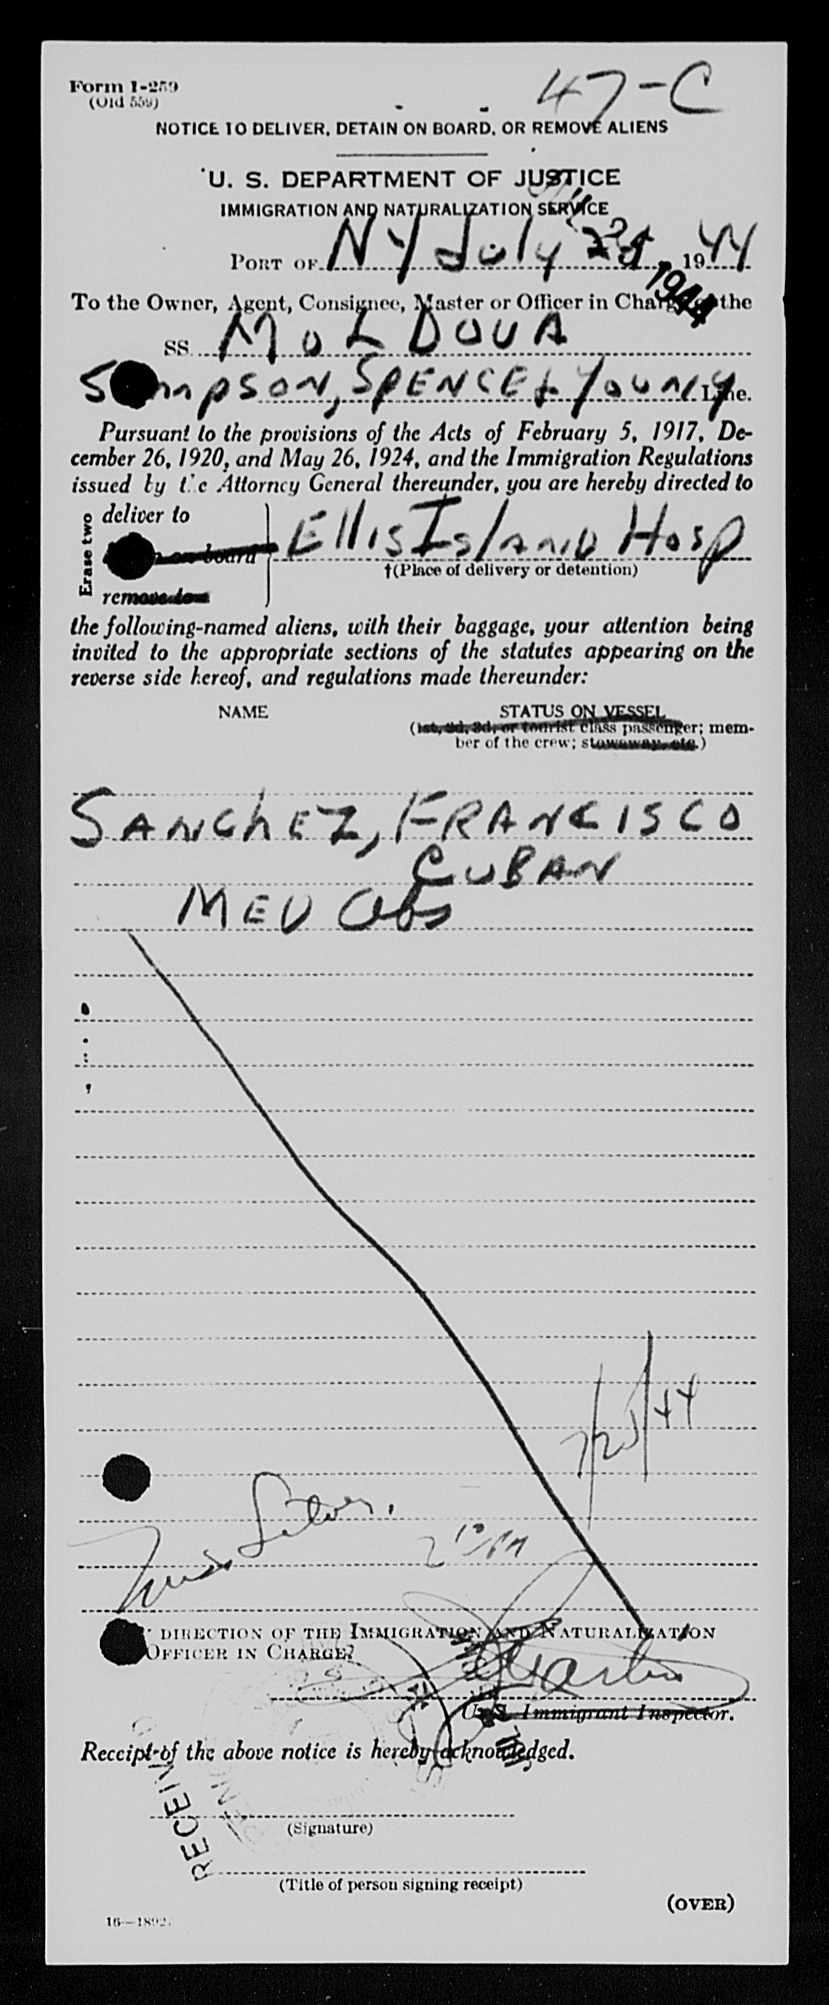 Form I-259
(Old 559)
47-C
NOTICE TO DELIVER, DETAIN ON BOARD, OR REMOVE ALIENS
U. S. DEPARTMENT OF JUSTICE
IMMIGRATION AND NATURALIZATION SERVICE
PORT OF NY July 1944
1944
To the Owner, Agent, Consignee, Master or Officer in Charge of the
SS. MOLDOUA
Simpson, SPENCE & Young Line.
Pursuant to the provisions of the Acts of February 5, 1917, De-
cember 26, 1920, and May 26, 1924, and the Immigration Regulations
issued by the Attorney General thereunder, you are hereby directed to
Erase two
deliver to
on board
Ellis Island Hosp
remove to
†(Place of delivery or detention)
the following-named aliens, with their baggage, your attention being
invited to the appropriate sections of the statutes appearing on the
reverse side hereof, and regulations made thereunder:
NAME STATUS ON VESSEL
(1st, 2d, 3d, or tourist class passenger; mem-
ber of the crew; stowaway, etc.)
SANChEZ, FRANCISCO
CUBAN
MED Obs
7/25/44
2 10 PM
DIRECTION OF THE IMMIGRATION AND NATURALIZATION
OFFICER IN CHARGE:
Martin
U. S. Immigrant Inspector.
Receipt of the above notice is hereby acknowledged.
RECEIV
(Signature)
(Title of person signing receipt)
(OVER)